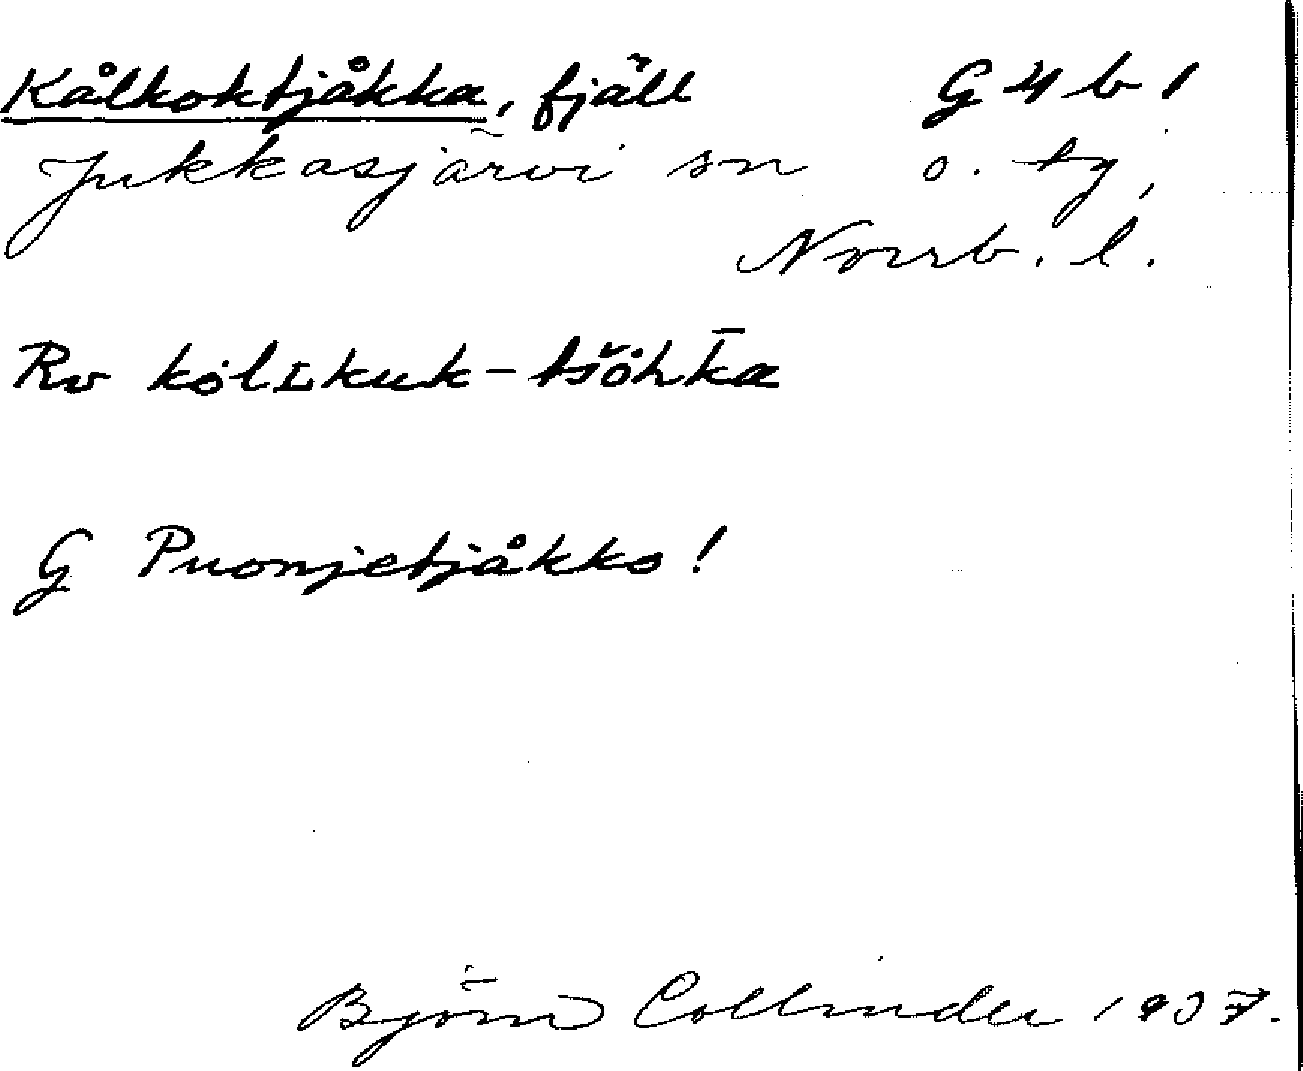 Kålkoktjåkka, fjäll G 4 b 1
Jukkasjärvi sn o. tg,
Norrb. l.
Rv kolıkuk-tšöhka
G Puonjetjåkko!
Björn Collinder 1937.